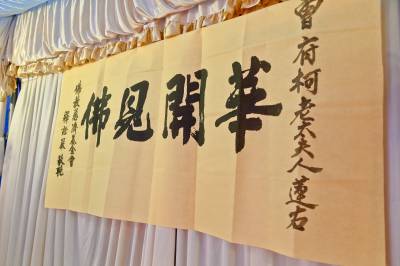 曾府柯老太夫人蓮右
華開見佛
佛教慈濟基金會
釋證嚴敬輓